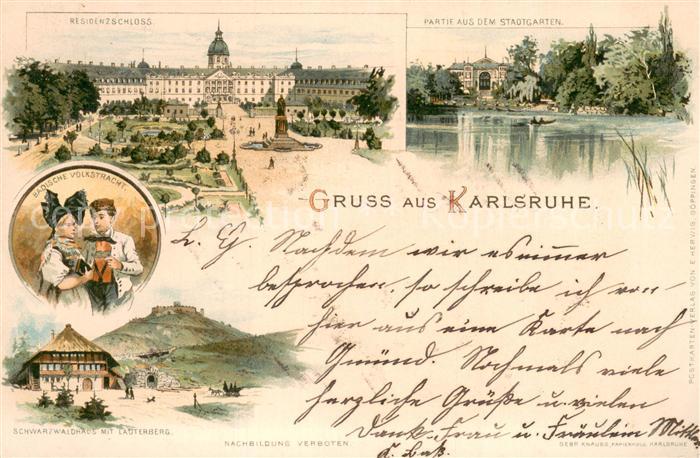 RESIDENZSCHLOSS.
PARTIE AUS DEM STADTGARTEN.
BADISCHE VOLKSTRACHT.
GRUSS AUS KARLSRUHE.
L. G. Nachdem wir es immer
besprochen, so schreibe ich von
hier aus eine Karte nach
Gmünd. Nochmals viele
herzliche Grüße u. vielen
Dank. Frau u. Fräulein
SCHWARZWALDHAUS MIT LAUTERBERG.
NACHBILDUNG VERBOTEN.
GEBR. KNAUSS, PAPIERHDLG. KARLSRUHE
POSTKARTEN-VERLAG VON E. HERWIG, GÖPPINGEN.